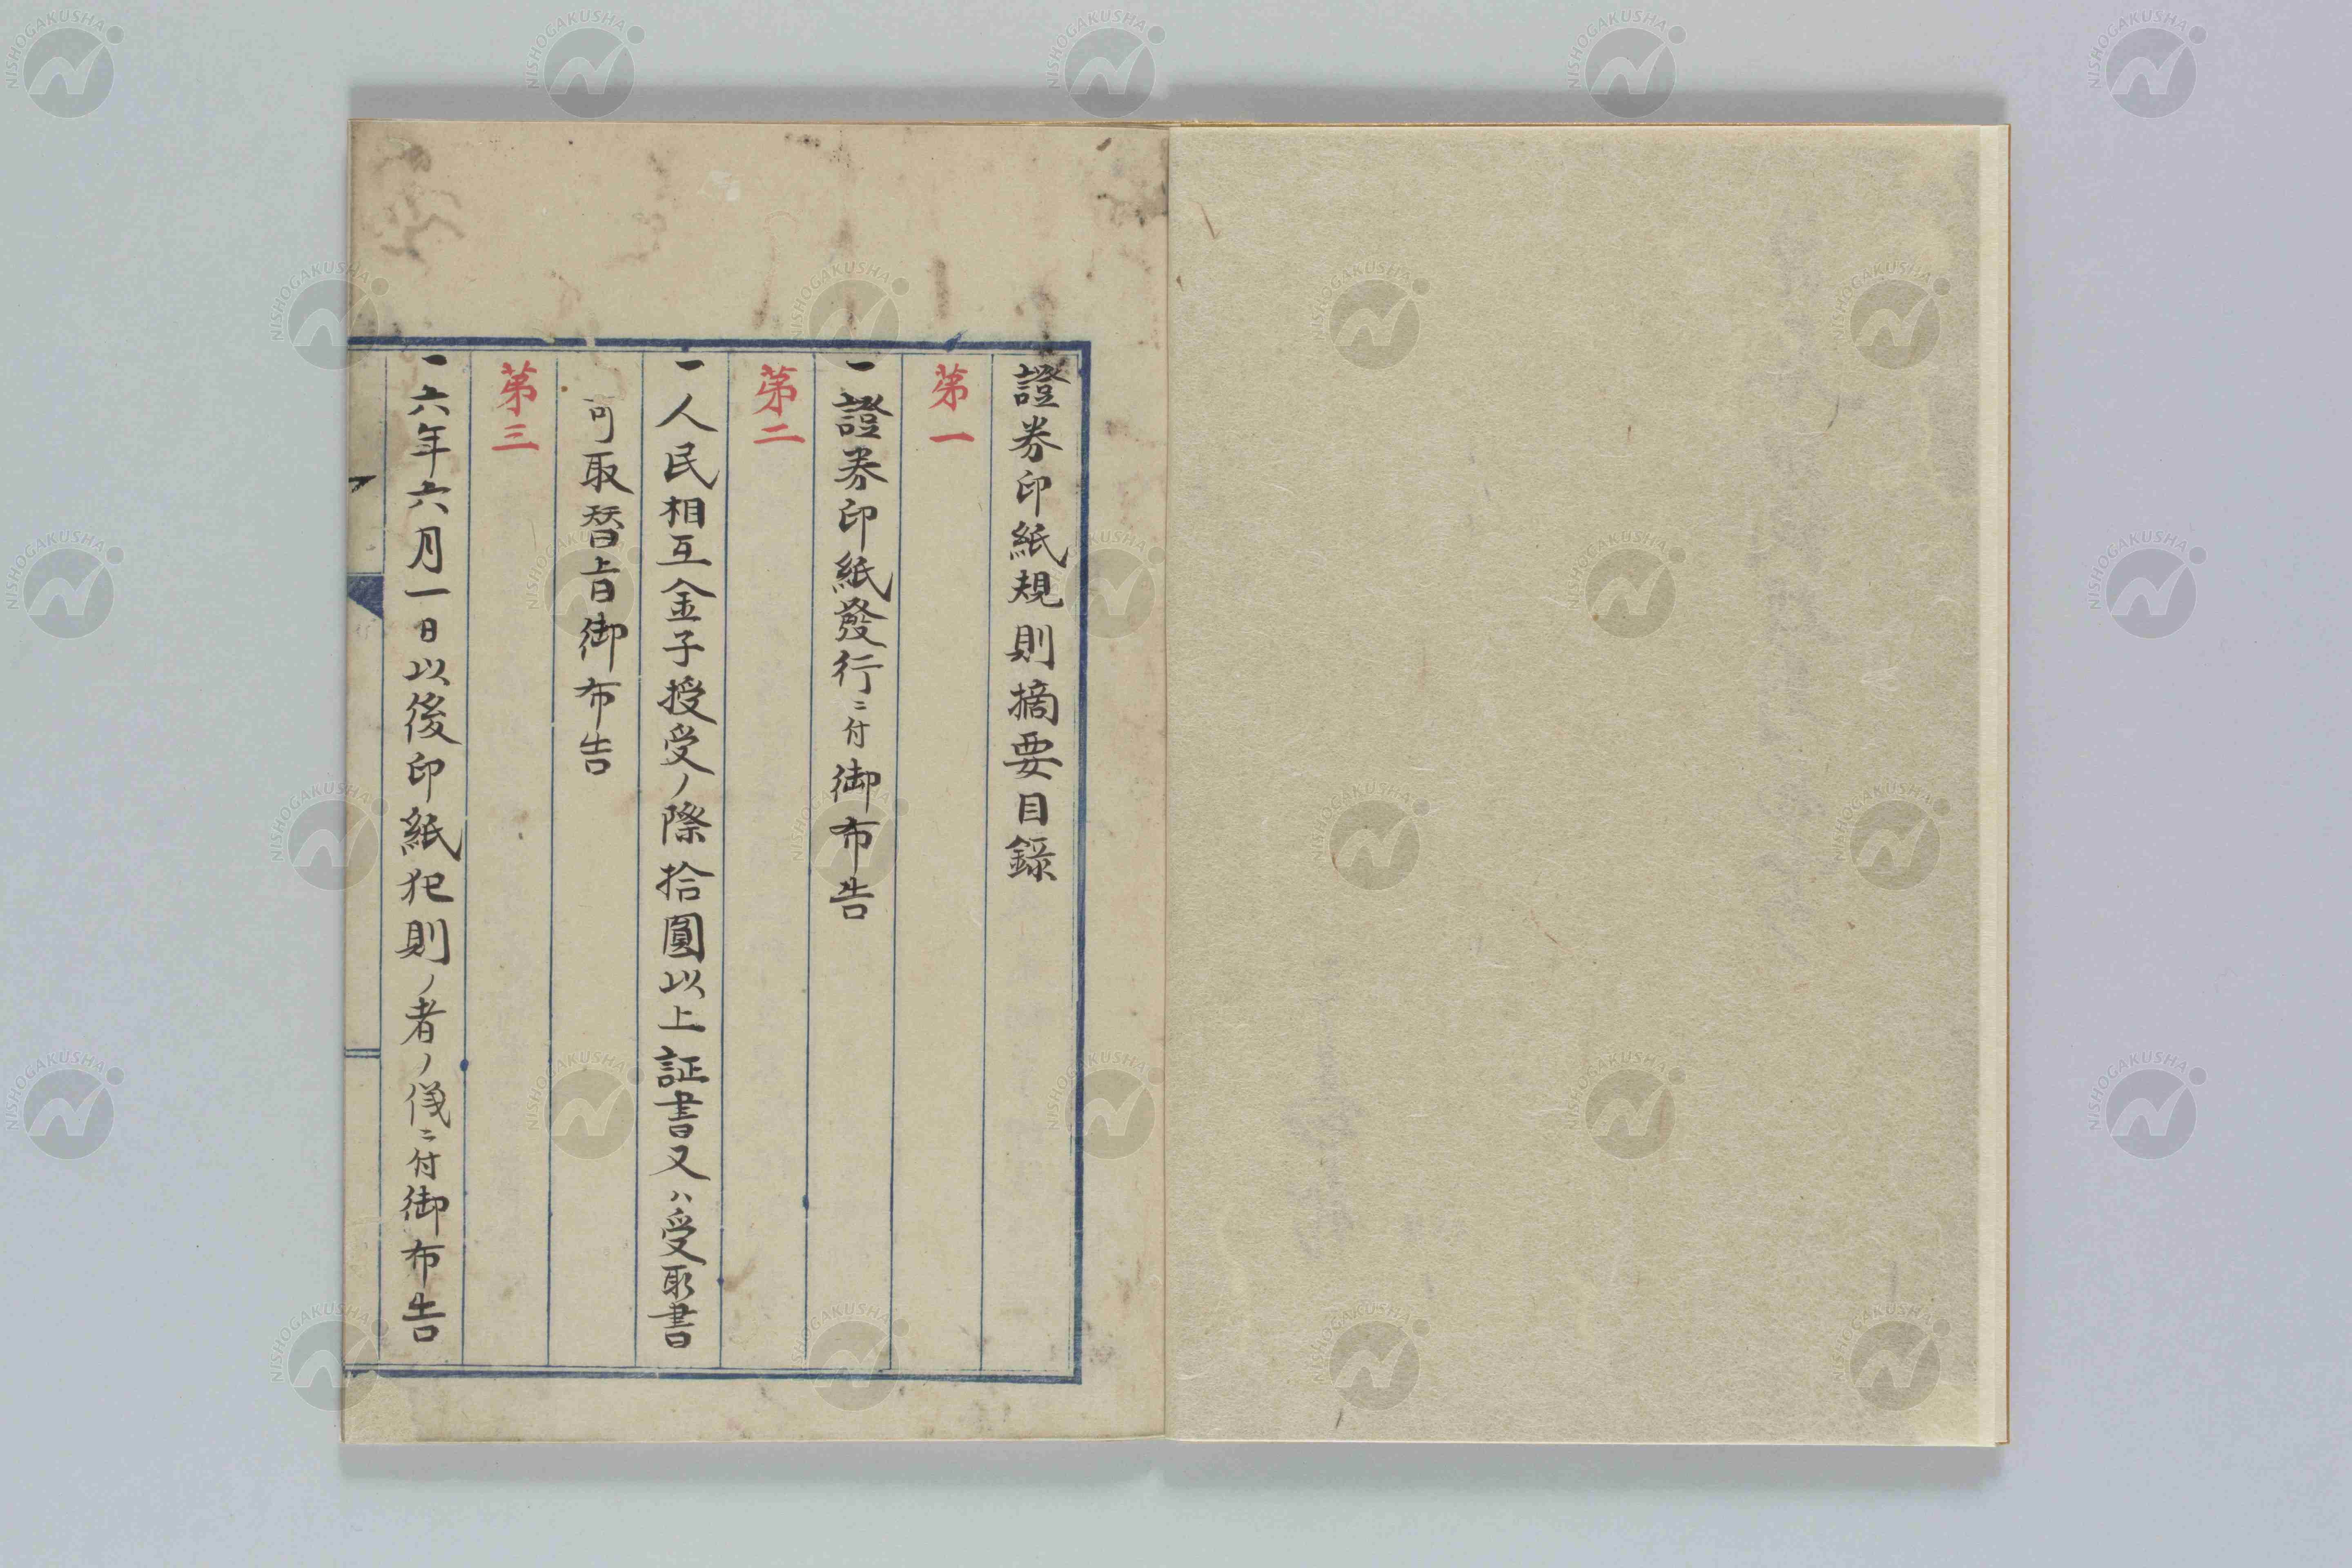 證券印紙規則摘要目錄
第一
一證券印紙發行ニ付御布告
第二
一人民相互金子授受ノ際拾圓以上証書又ハ受取書
可取替旨御布告
第三
一六年六月一日以後印紙犯則ノ者ノ儀ニ付御布告
NISHOGAKUSHA